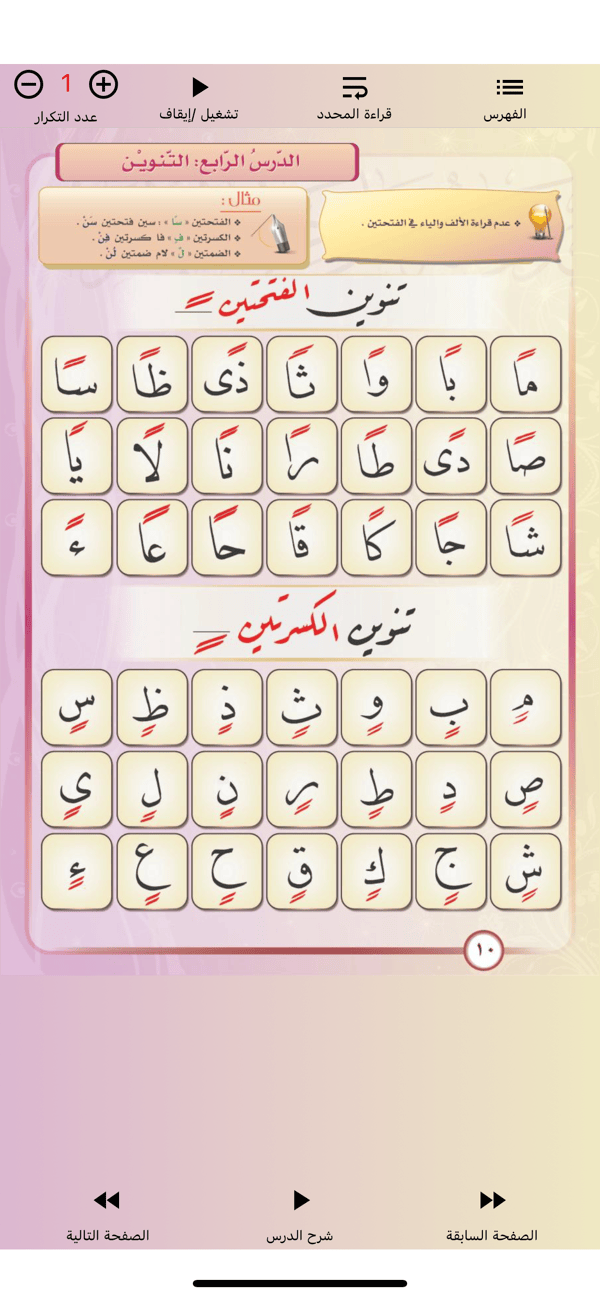 1
عدد التكرار
تشغيل /إيقاف
قراءة المحدد
الفهرس
الدّرسُ الرّابع: التّنويْن
❖ عدم قراءة الألف والياء في الفتحتين .
مثال :
❖ الفتحتين « سًا » : سين فتحتين سَنْ .
❖ الكسرتين « فٍ » فا كسرتين فِنْ .
❖ الضمتين « لٌ » لام ضمتين لُنْ .
تنوين الفتحتين ــًـ
مًا بًا وًا ثًا ذًى ظًا سًا
صًا دًى طًا رًا نًا لًا يًا
شًا جًا كًا قًا حًا عًا ءً
تنوين الكسرتين ــٍـ
مٍ بٍ وٍ ثٍ ذٍ ظٍ سٍ
صٍ دٍ طٍ رٍ نٍ لٍ يٍ
شٍ جٍ كٍ قٍ حٍ عٍ ءٍ
١٠
الصفحة السابقة
شرح الدرس
الصفحة التالية